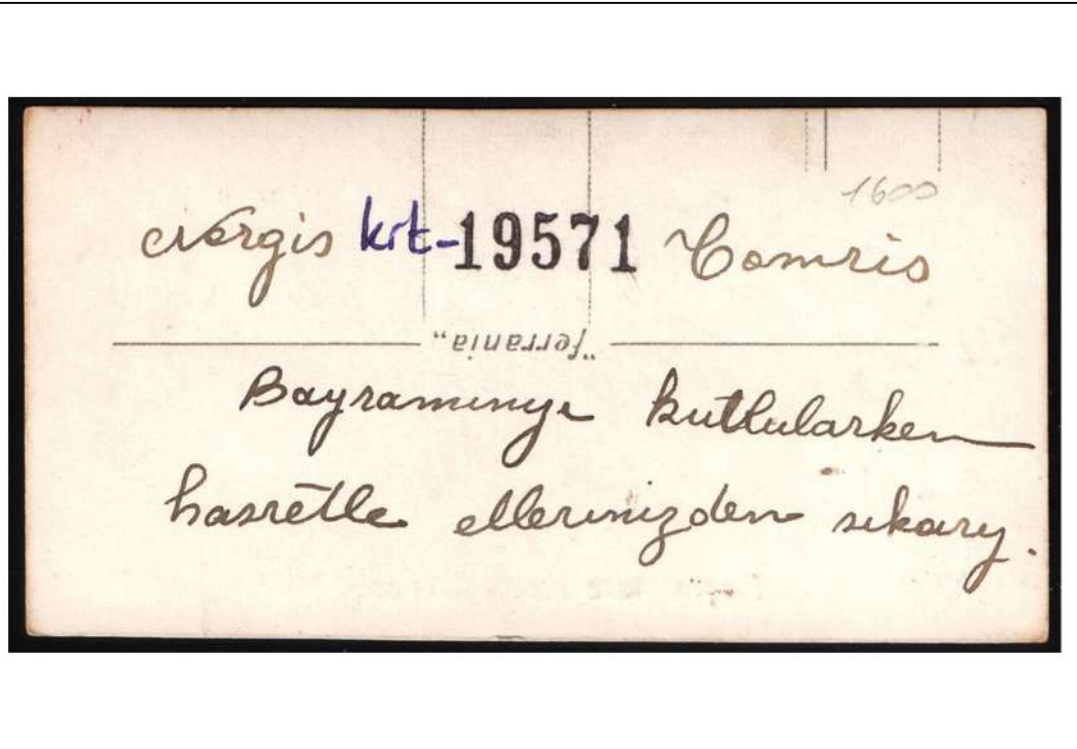 1600
Nergis krt-19571 Tomris
"ferrania"
Bayramınızı kutlularken
hasretle ellerinizden sıkarız.